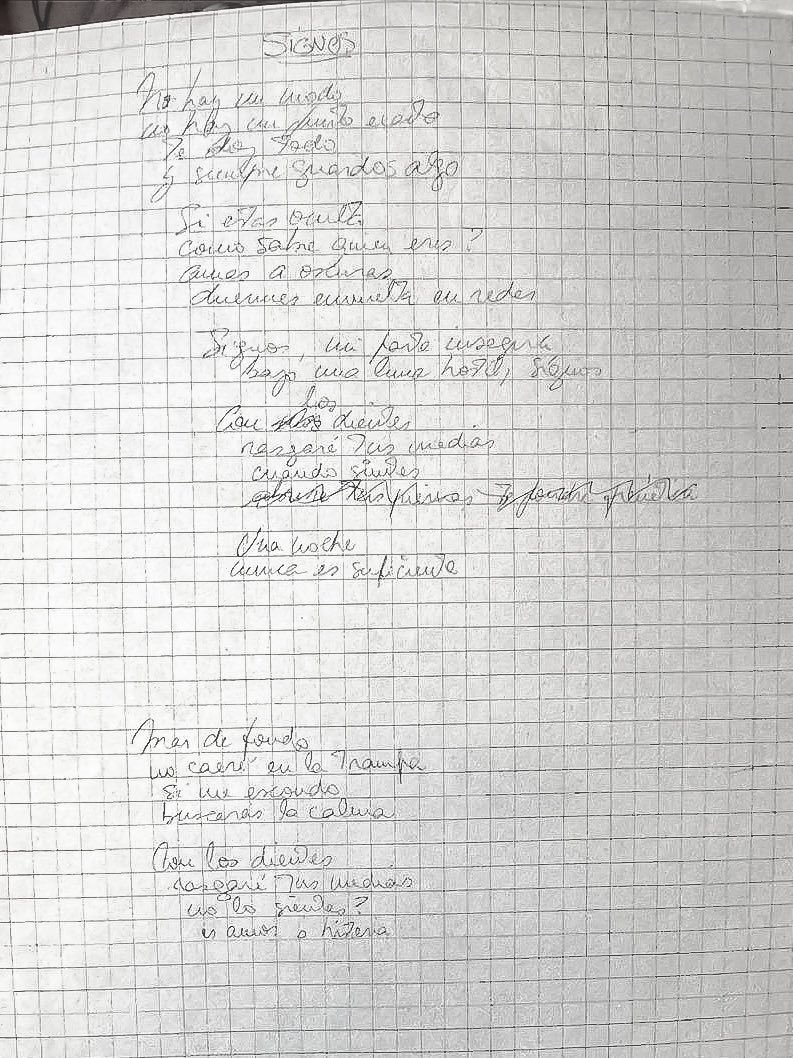 SIGNOS
No hay un modo
no hay un punto exacto
Te doy todo
y siempre guardas algo
Si estas oculta
como sabre quien eres?
amas a oscuras
duermes envuelta en redes
Signos, mi parte insegura
bajo una luna hostil, signos
los
Con dientes
rasgaré tus medias
cuando sientes
tus piernas
Una noche
nunca es suficiente
Mar de fondo
no caeré en la trampa
Si me escondo
buscarás la calma
Con los dientes
rasgaré tus medias
no lo sientes?
es amor o histeria